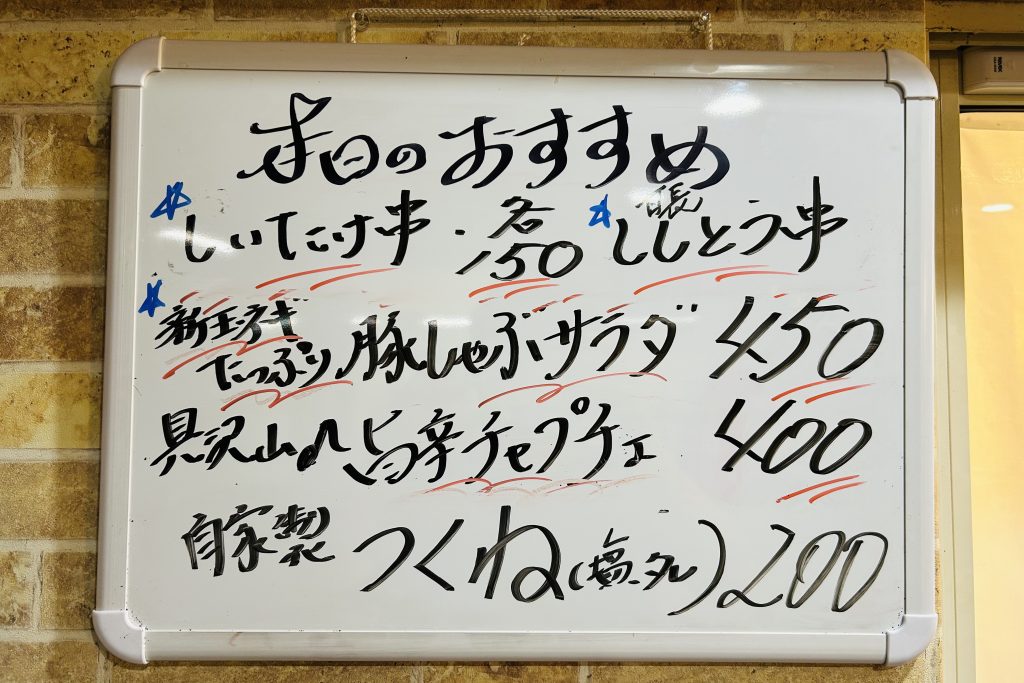 本日のおすすめ
☆しいたけ串・各150 ☆長ししとう串
☆新玉ネギ
たっぷり♪豚しゃぶサラダ 450
具沢山♪旨辛チャプチェ 400
自家製 つくね(塩・タレ)200